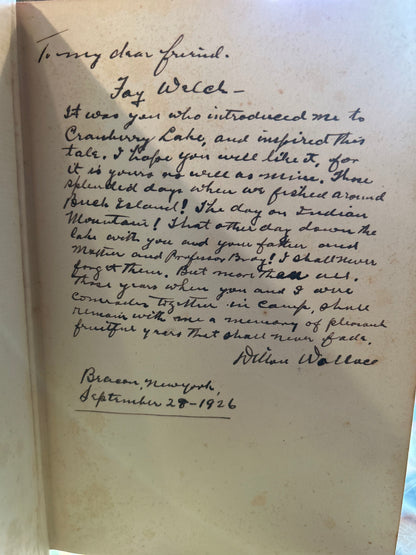 To my dear friend.
Fay Welch —
It was you who introduced me to
Cranberry Lake, and inspired this
tale. I hope you will like it, for
it is yours as well as mine. Those
splendid days when we fished around
Buck Island! The day on Indian
Mountain! That other day down the
lake with you and your father and
Mother and Professor Bray! I shall never
forget them. But more than all.
those years when you and I were
comrades together in camp, shall
remain with me a memory of pleasant
fruitful years that shall never fade.
Dillon Wallace
Beacon, New York,
September 28 - 1926